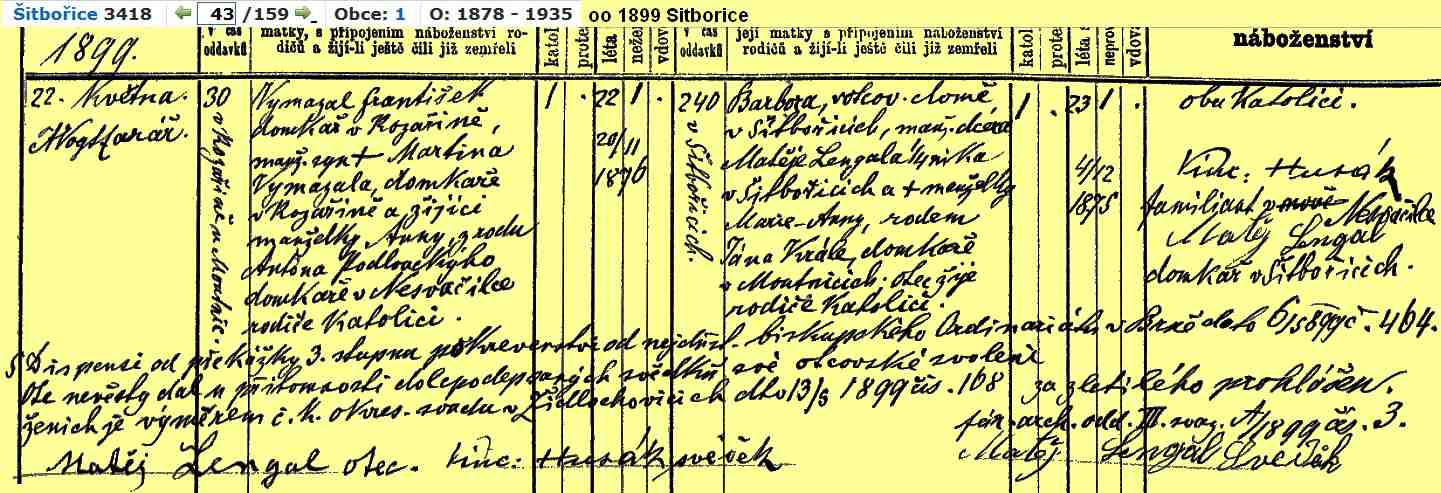 Šitbořice 3418 43 /159 Obce: 1 O: 1878 - 1935 oo 1899 Sitborice
1899.
v čas oddavků
matky, s připojením náboženství ro-
dičů a žijí-li ještě čili již zemřeli
katol
prote
léta
nežen
vdov
v čas
oddavků
její matky s připojením náboženství
rodičů a žijí-li ještě čili již zemřeli
katol
prote
léta
nepro
vdova
náboženství
22. Května.
farář.
30
v Rozařině u Moutnic.
Vymazal František
domkař v Rozařině,
manž. syn + Martina
Vymazala, domkaře
v Rozařině a žijící
manželky Anny, z rodu
Antona
domkaře v Nesvačilce
rodiče Katolíci.
1 . 22 1 .
20/11
1876
240
v Šitbořicích.
Barbora, domě,
v Šitbořicích, manž. dcera
Matěje Lengala
v Šitbořicích a + manželky
Marie-Anny, rodem
Jána Krále, domkaře
v Moutnicích. otec žije
rodiče Katolíci.
1 . 23 1 .
4/12
1875
oba Katolíci.
Vinc: Husák
familiant v Nesvačilce
Matěj Lengál
domkář v Šitbořicích.
Dispensí od překážky 3. stupně pokrevenství od nejdůst. biskupského Ordinariátu v Brně dato 6/5 899 č. 464.
Otec nevěsty dal u přítomnosti dolepodepsaných svědků své otcovské svolení
ženich je výměrem c. k. okres. soudu v Židlochovicích dto 13/5 1899 čís. 168 za zletilého prohlášen.
fár. arch. odd. III. svaz. A/1899 čís. 3.
Matěj Lengal otec. Vinc: Husák svěděk Matěj Lengál Svědék